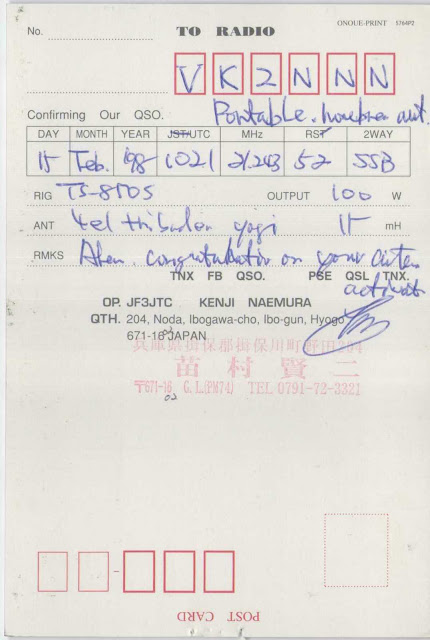 ONOUE-PRINT 5764P2
No.
TO RADIO
VK2NNN
Confirming Our QSO. Portable.
DAY MONTH YEAR JST UTC MHz RST 2WAY
15 Feb. 198 1021 21.243 52 SSB
RIG TS-850S OUTPUT 100 W
ANT 4el tribander yagi 15 mH
RMKS congratulation on your
TNX FB QSO. PSE QSL TNX.
OP. JF3JTC KENJI NAEMURA
QTH. 204, Noda, Ibogawa-cho, Ibo-gun, Hyogo
671-16 JAPAN
02
兵庫県揖保郡揖保川町野田204
苗村賢二
〒671-16 G.L(PM74) TEL 0791-72-3321
02
POST CARD